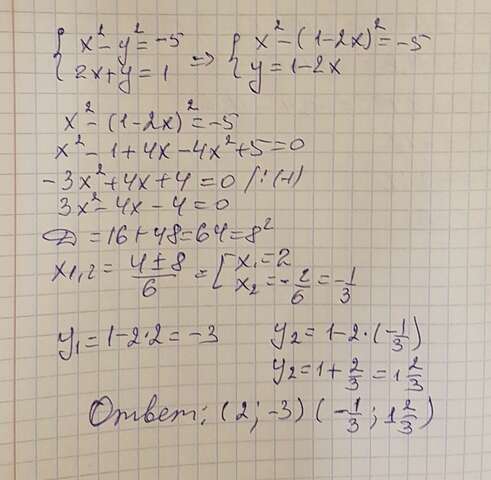 { x² - y² = -5 => { x² - (1-2x)² = -5
{ 2x + y = 1 { y = 1-2x
x² - (1-2x)² = -5
x² - 1 + 4x - 4x² + 5 = 0
-3x² + 4x + 4 = 0 /:(-1)
3x² - 4x - 4 = 0
D = 16 + 48 = 64 = 8²
x₁,₂ = (4±8)/6 = [ x₁ = 2
x₂ = -2/6 = -1/3
y₁ = 1-2·2 = -3 y₂ = 1-2·(-1/3)
y₂ = 1 + 2/3 = 1 2/3
Ответ: (2; -3) (-1/3; 1 2/3)